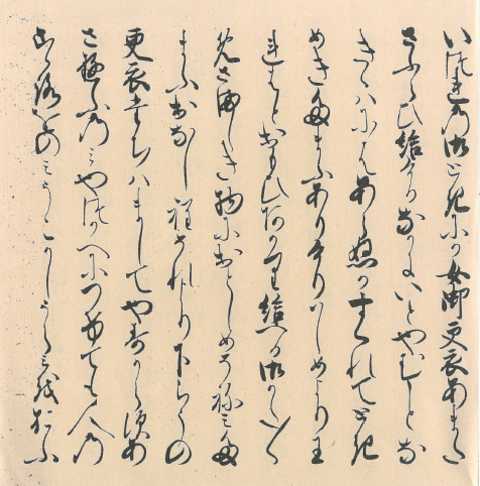 いつれの御ときにか女御更衣あまた
さふらひ給ける なかにいとやむことな
ききはにはあらぬかすくれてとき
めきたまふありけりはしめよりわ
れはとおもひあかり給へる御かた〱
めさましき物におとしめそねみた
まふおなし程それより下らうの
更衣たちはましてやすからすあ
さ夕のみやつかへにつけても人の
こころをのみうこかしうらみをおふ